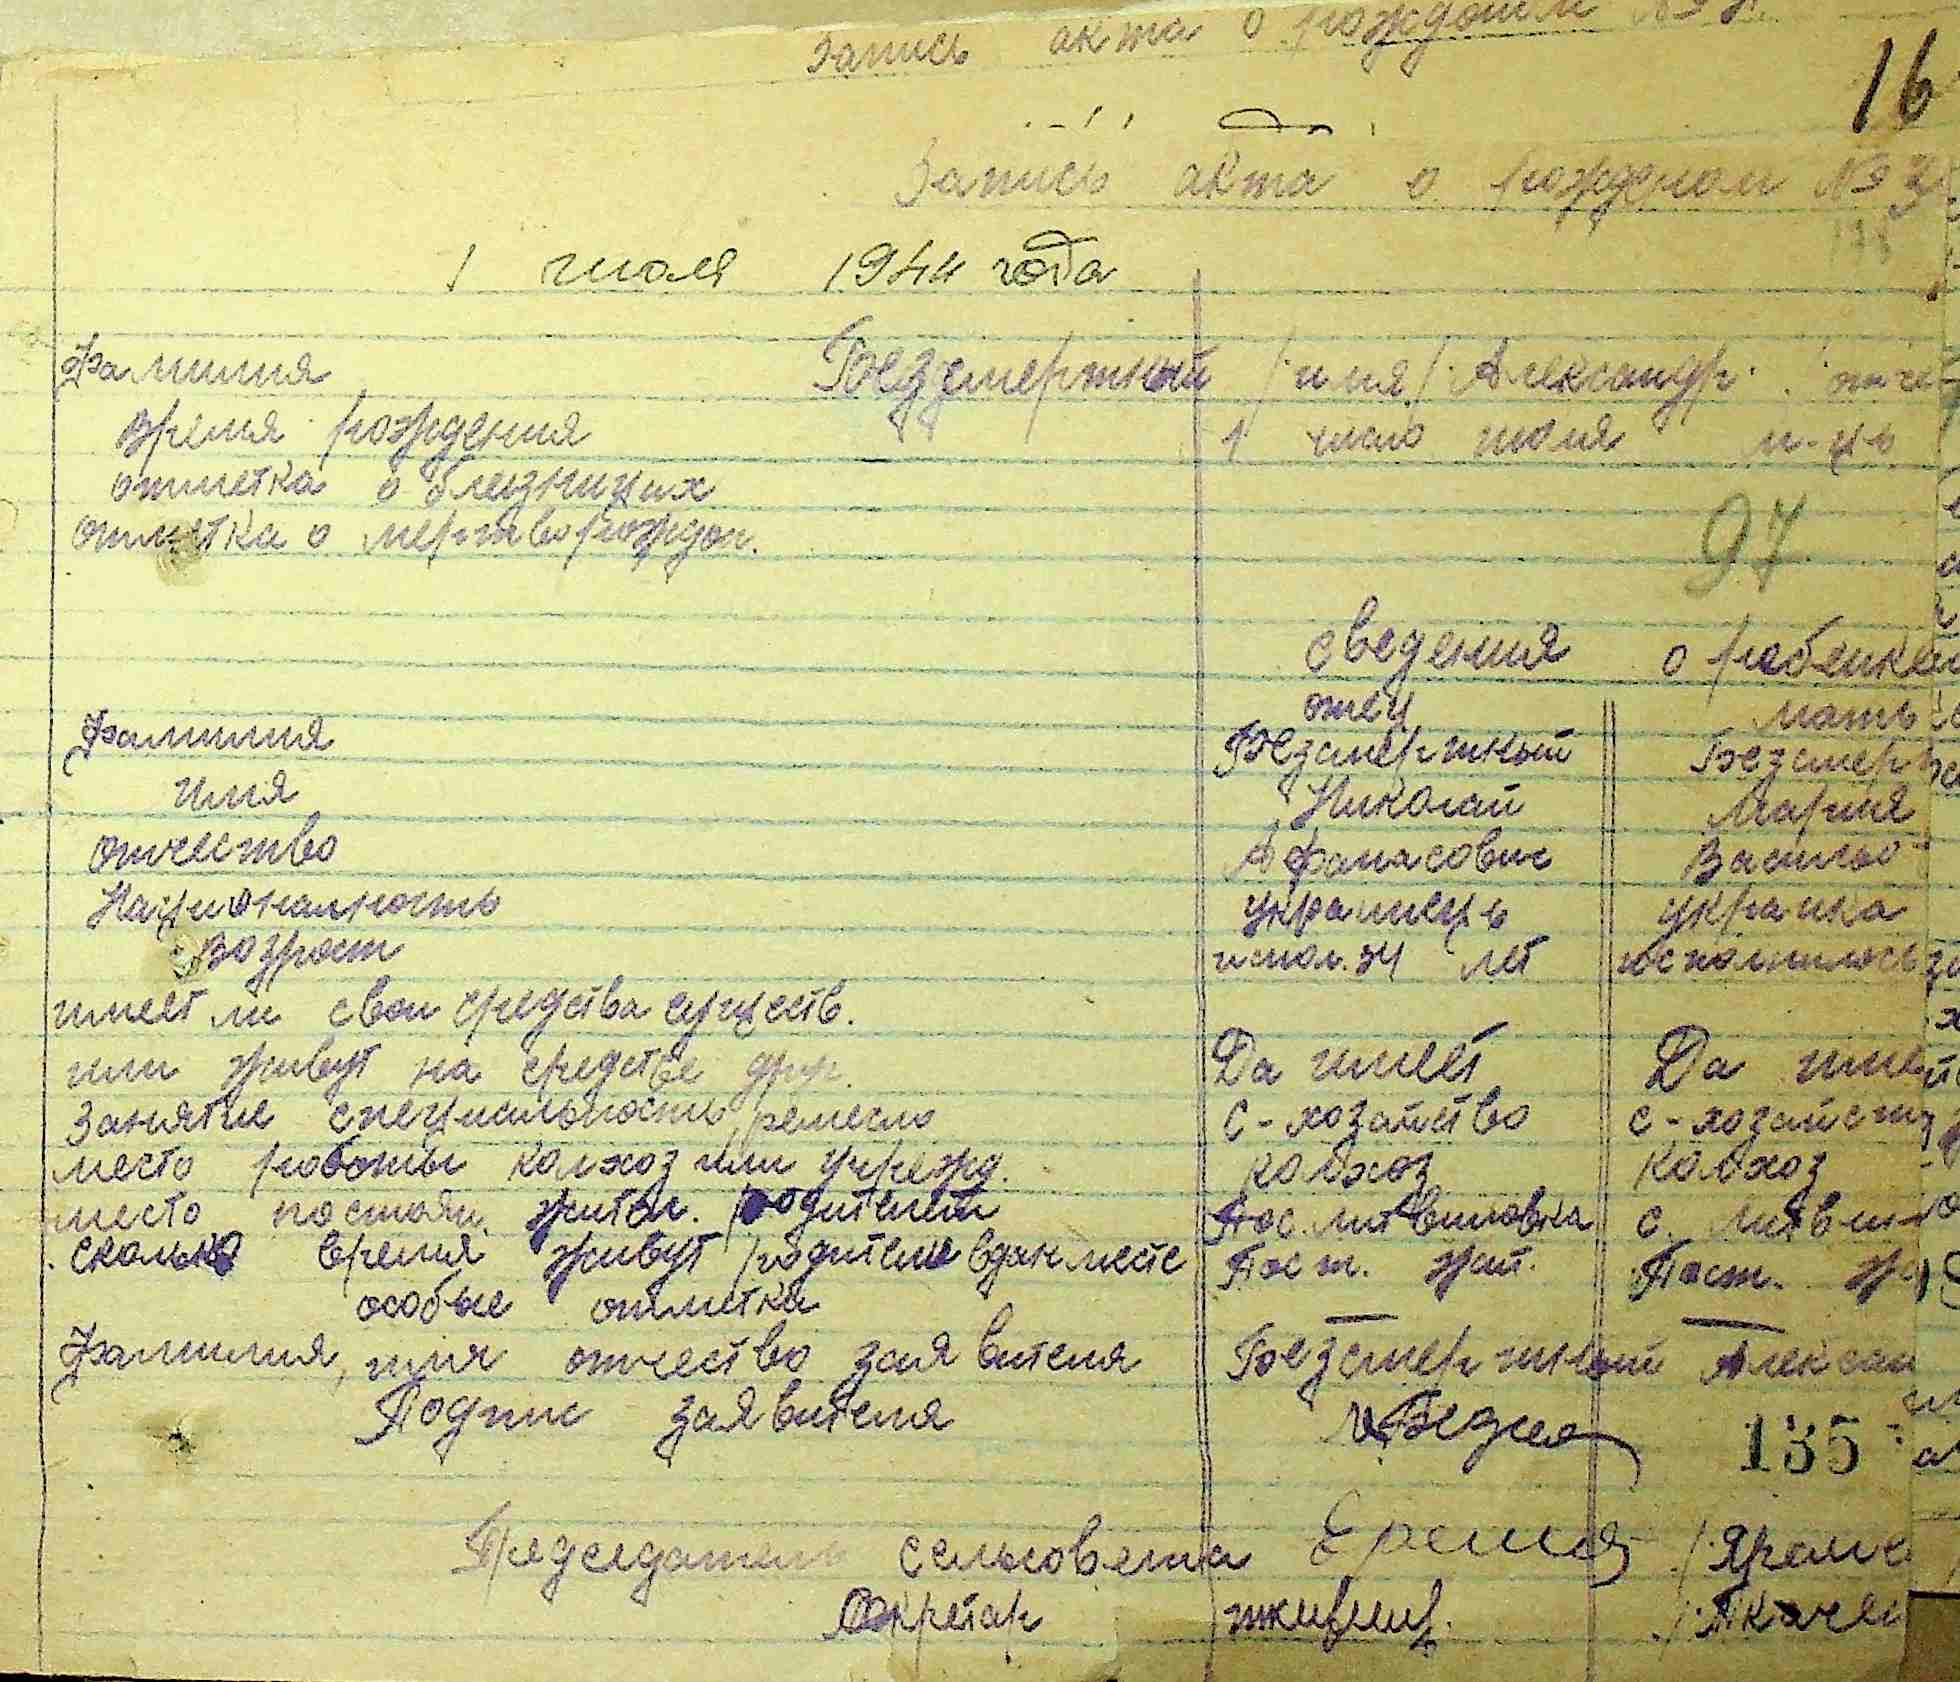 запись акта о рождении №
16
Запись акта о рожденом № 3
1 июля 1944 года
Фамилия Безсмертный /имя/ Александр /отче
время рождения 1 число июля м-ць
отметка о близницих
отметка о мертворождон.
97
сведения о ребенке
отец мать
Фамилия Безсмертный Безсмерт
имя Николай Мария
отчество Афанасович Василью-
Националность украинець украинка
возраст испол. 34 лет исполнилось
имеет ли свои средства существ.
или живут на средстве друг. Да имеет Да име
занятие специальность, ремесло с-хозайство с-хозайств
место работы колхоз или учрежд. колхоз колхоз
место постоян. жител. родителей Пос. Литвиновка с. Литвин
сколько время живут родители в дан месте Пост. жит. Пост. ж
особые отметка — —
Фамилия, имя отчество заявителя Безсмертный Алексан
Подпис заявителя Безсм
135
Председатель сельсовета /Ярема
Секретар /Ткачен